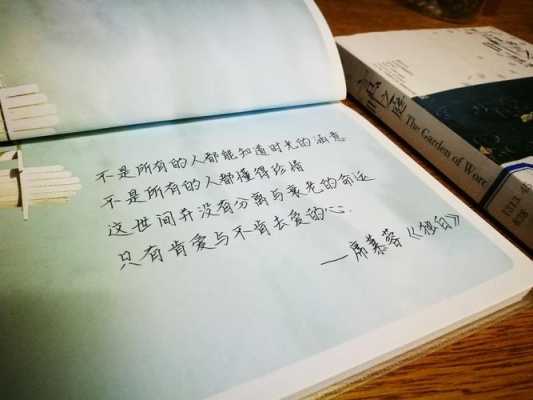 不是所有的人都能知道时光的涵意
不是所有的人都懂得珍惜
这世间并没有分离与衰老的命运
只有肯爱与不肯去爱的心.
——席慕蓉《独白》
言之庭
The Garden of Word
I313.45
838